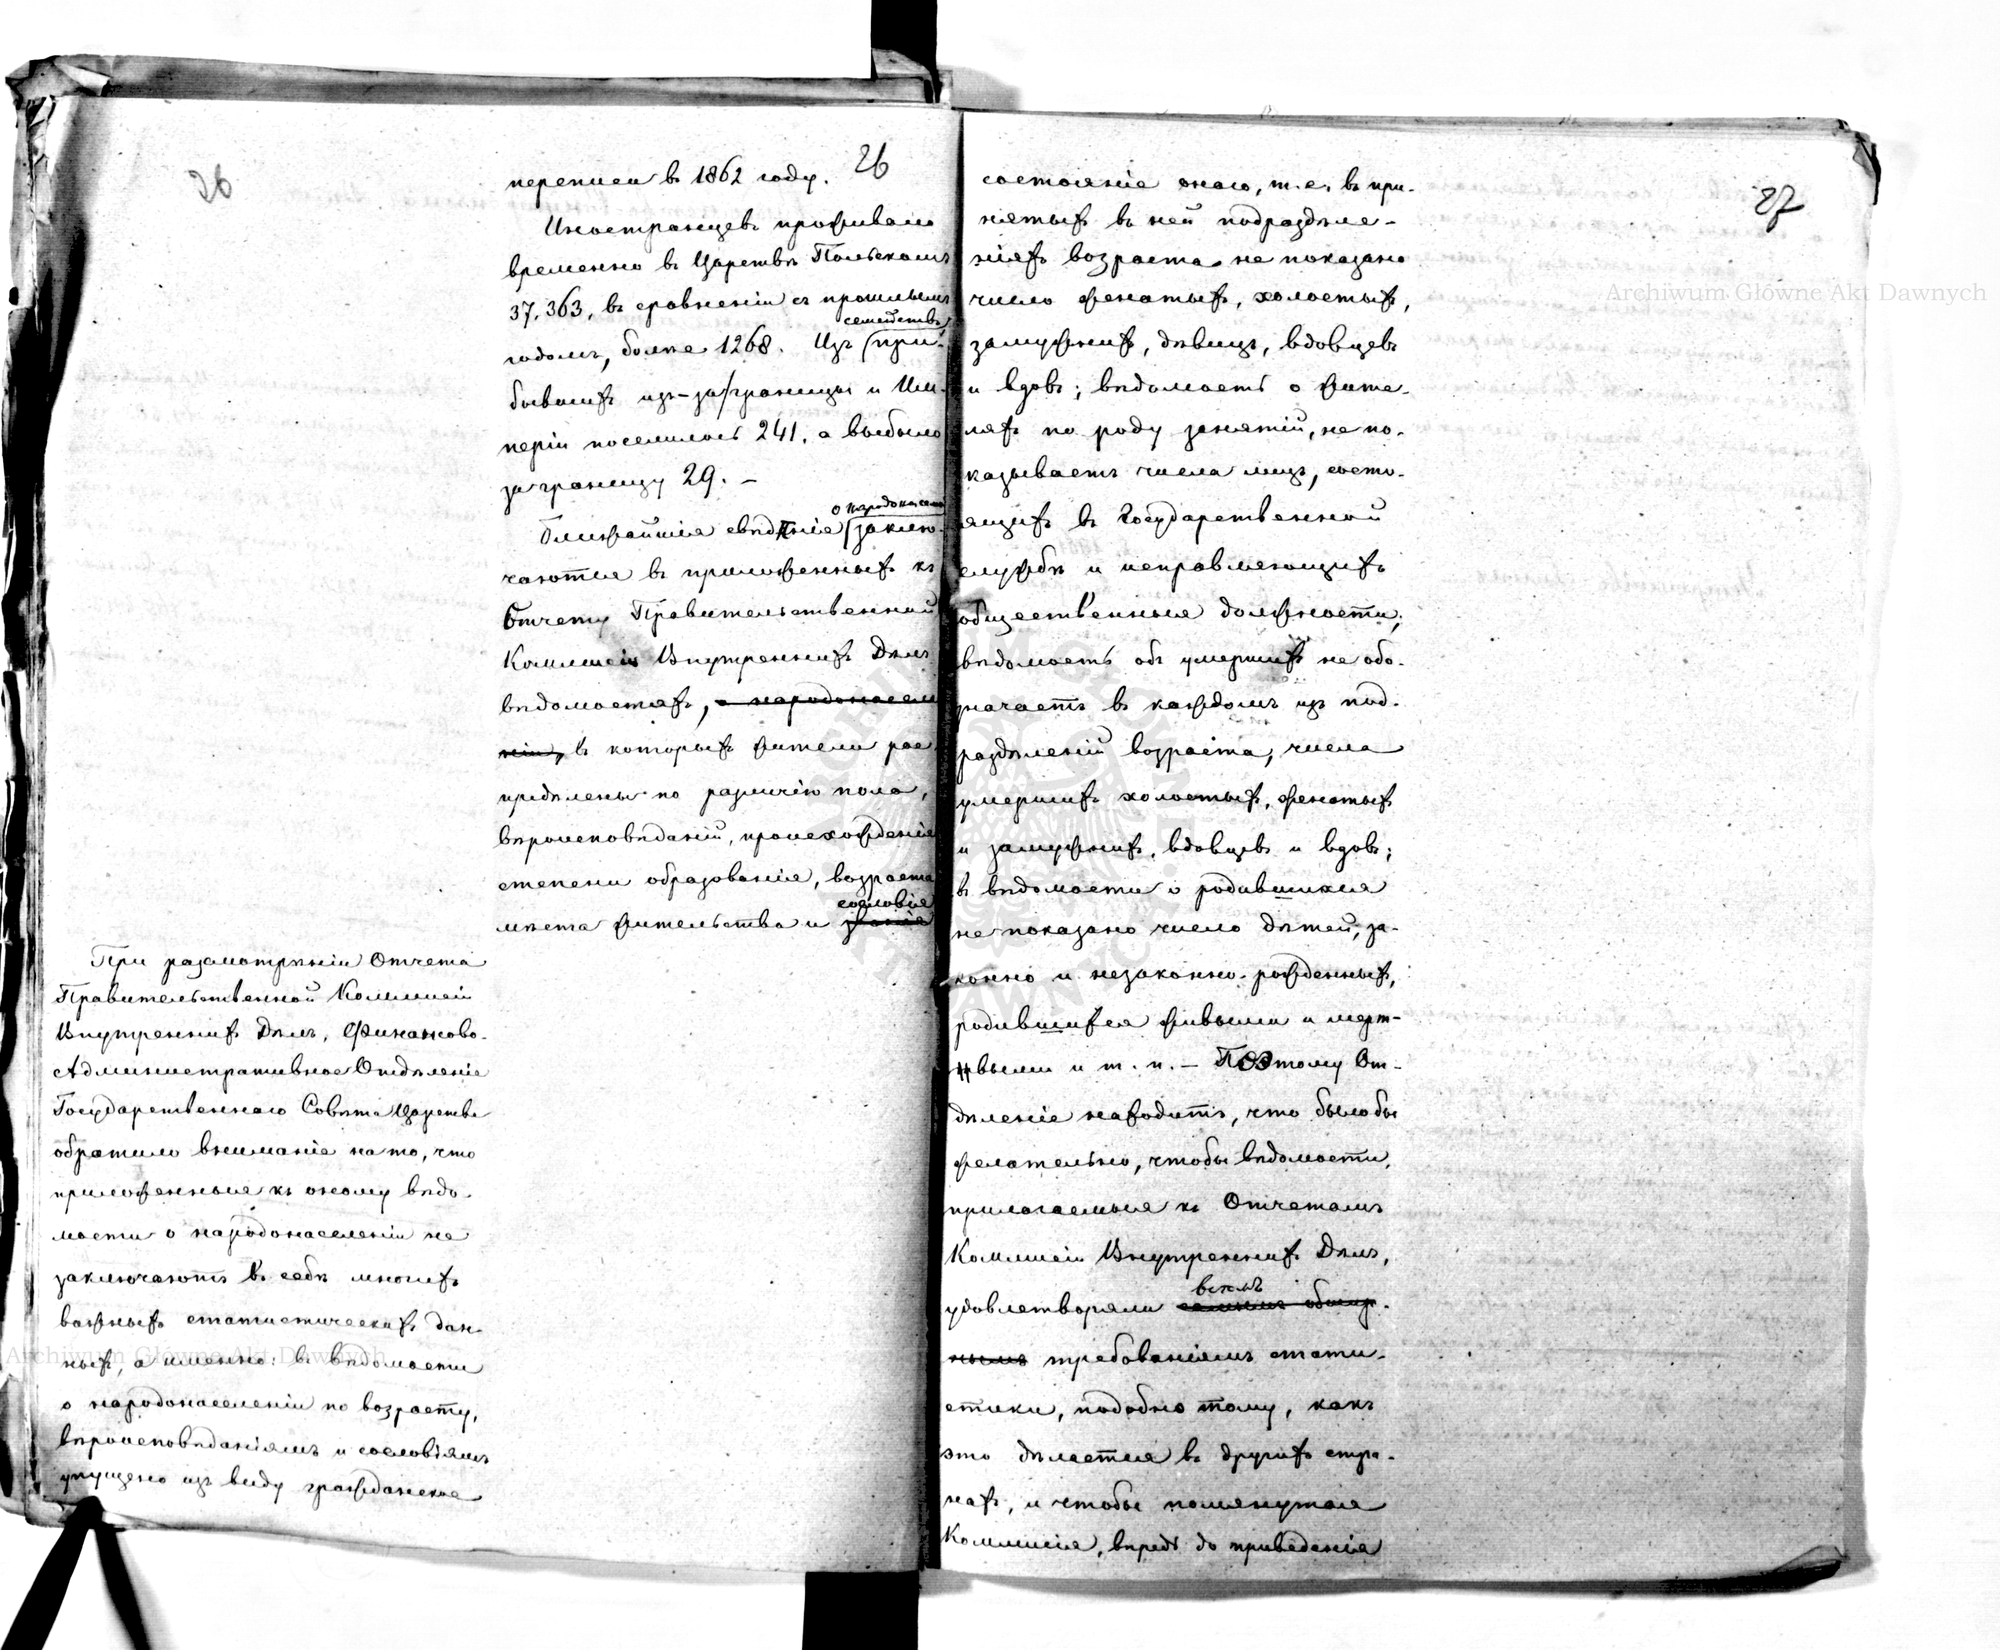 26
26
переписи въ 1862 году.
Иностранцевъ проживало
временно въ Царствѣ Польскомъ
37,363, въ сравненіи съ прошлымъ
семействъ
годомъ, болѣе 1268. Изъ при-
бывшихъ изъ-за границы и Им-
періи поселилось 241, а выбыло
за границу 29. –
о народонасел
Ближайшія свѣдѣнія заклю-
чаются въ приложенныхъ къ
Отчету Правительственной
Коммисіи Внутреннихъ Дѣлъ
вѣдомостяхъ, о народонаселе
ніи, въ которыхъ жители рас
предѣлены по различію пола,
вѣроисповѣданій, происхожденія
степени образованія, возраста
сословія
мѣста жительства и званія
При разсмотрѣніи Отчета
Правительственной Коммисіи
Внутреннихъ Дѣлъ, Финансово-
Административное Отдѣленіе
Государственнаго Совѣта Царства
обратило вниманіе на то, что
приложенныя къ оному вѣдо-
мости о народонаселеніи не
заключаютъ въ себѣ многихъ
важныхъ статистическихъ дан-
ныхъ, а именно: въ вѣдомости
о народонаселеніи по возрасту,
вѣроисповѣданіямъ и сословіямъ
упущено изъ виду гражданское
27
состояніе онаго, т.е. въ при-
нятыхъ въ ней подраздѣле-
ніяхъ возраста не показано
число женатыхъ, холостыхъ,
замужнихъ, дѣвицъ, вдовцевъ
и вдовъ; вѣдомость о жите-
ляхъ по роду занятій, не по-
казываетъ числа лицъ, состо-
ящихъ въ Государственной
службѣ и исправляющихъ
общественныя должности;
вѣдомость объ умершихъ не обо-
значаетъ въ каждомъ изъ под-
раздѣленій возраста, числа
умершихъ холостыхъ, женатыхъ
и замужнихъ, вдовцевъ и вдовъ;
въ вѣдомости о родившихся
не показано число дѣтей, за-
конно и незаконно-рожденныхъ,
родившихся живыми и мерт-
выми и т. п. – Поэтому От-
дѣленіе находитъ, что было бы
желательно, чтобы вѣдомости,
прилагаемыя къ Отчетамъ
Коммисіи Внутреннихъ Дѣлъ,
всѣмъ
удовлетворяли
требованіямъ стати-
стики, подобно тому, какъ
это дѣлается въ другихъ стра-
нахъ, и чтобы помянутая
Коммисія, впредь до приведенія
Archiwum Główne Akt Dawnych
Archiwum Główne Akt Dawnych